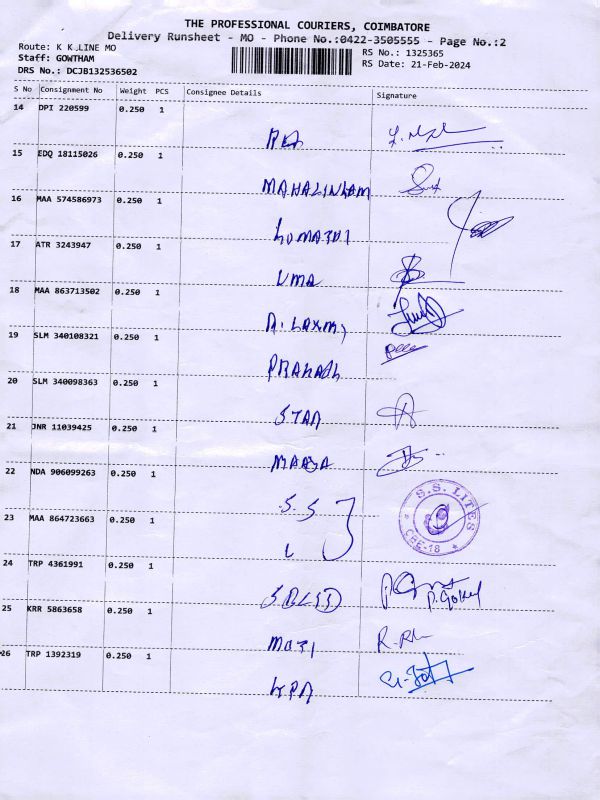 THE PROFESSIONAL COURIERS, COIMBATORE
Delivery Runsheet - MO - Phone No.:0422-3505555 - Page No.:2
Route: K K.LINE MO
RS No.: 1325365
Staff: GOWTHAM
RS Date: 21-Feb-2024
DRS No.: DCJB132536502
S No Consignment No Weight PCS Consignee Details Signature
14 DPI 220599 0.250 1
15 EDQ 18115026 0.250 1
MAHALINGAM
16 MAA 574586973 0.250 1
GOMATHI
17 ATR 3243947 0.250 1
UMA
18 MAA 863713502 0.250 1
A. LAXMI
19 SLM 340108321 0.250 1
PRAKASH
20 SLM 340098363 0.250 1
STAR
21 JNR 11039425 0.250 1
22 NDA 906099263 0.250 1
S.S
S.S. LITES
CBE-18
23 MAA 864723663 0.250 1
L
24 TRP 4361991 0.250 1
25 KRR 5863658 0.250 1
26 TRP 1392319 0.250 1